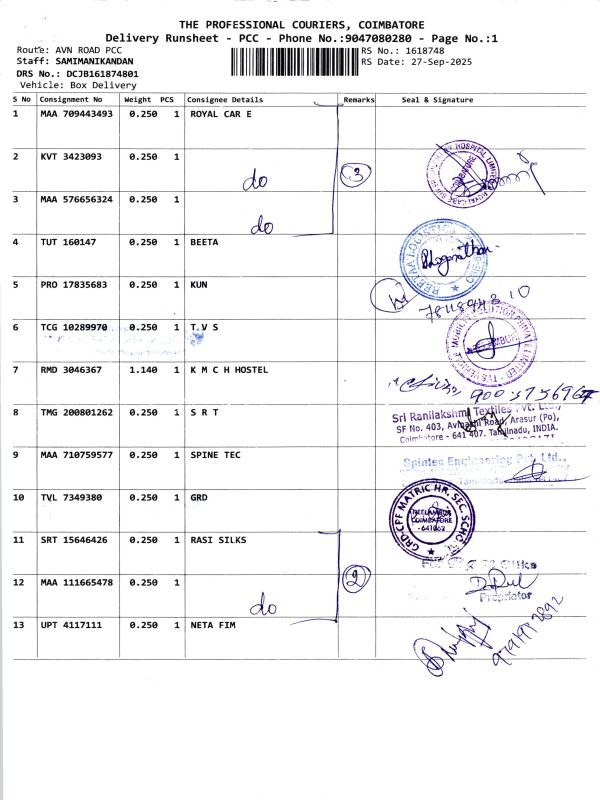 THE PROFESSIONAL COURIERS, COIMBATORE
Delivery Runsheet - PCC - Phone No.:9047080280 - Page No.:1
Route: AVN ROAD PCC
RS No.: 1618748
Staff: SAMIMANIKANDAN
RS Date: 27-Sep-2025
DRS No.: DCJB161874801
Vehicle: Box Delivery
S No Consignment No Weight PCS Consignee Details Remarks Seal & Signature
1 MAA 709443493 0.250 1 ROYAL CAR E
2 KVT 3423093 0.250 1 do 3
3 MAA 576656324 0.250 1 do
4 TUT 160147 0.250 1 BEETA
5 PRO 17835683 0.250 1 KUN
6 TCG 10289970 0.250 1 T.V S
7 RMD 3046367 1.140 1 K M C H HOSTEL
8 TMG 200801262 0.250 1 S R T
Sri Ranilakshmi Textiles Pvt. Ltd.,
SF No. 403, Avinashi Road, Arasur (Po),
Coimbatore - 641 407. Tamilnadu, INDIA.
9 MAA 710759577 0.250 1 SPINE TEC
Spintec Engineering Pvt. Ltd.,
10 TVL 7349380 0.250 1 GRD
GRD-CPF MATRIC HR. SEC. SCHOOL
COIMBATORE
- 641062
11 SRT 15646426 0.250 1 RASI SILKS
12 MAA 111665478 0.250 1 do 2
Proprietor
13 UPT 4117111 0.250 1 NETA FIM